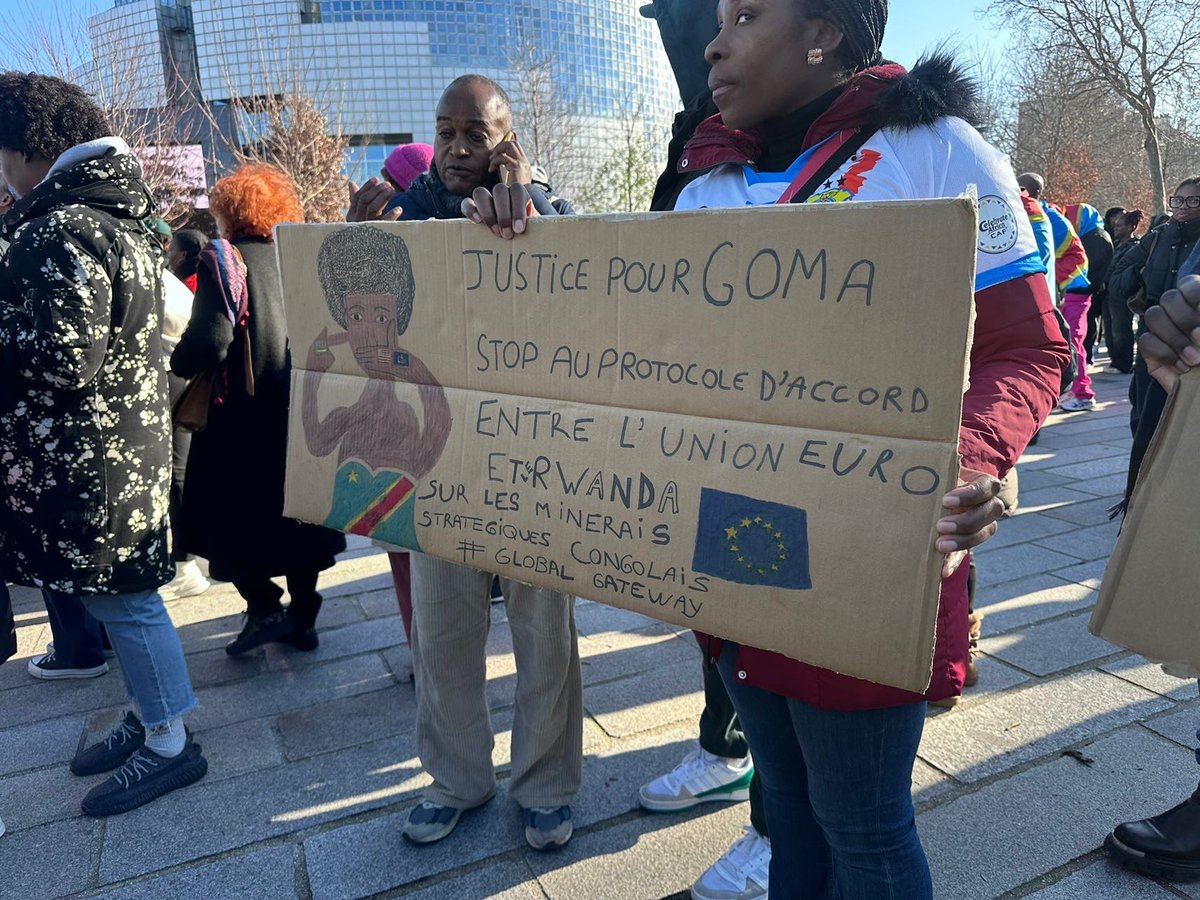 JUSTICE POUR GOMA
STOP AU PROTOCOLE D'ACCORD
ENTRE L'UNION EURO
ET LE RWANDA
SUR LES MINERAIS
STRATEGIQUES CONGOLAIS
# GLOBAL GATEWAY
Celebrate
Africa
CAF